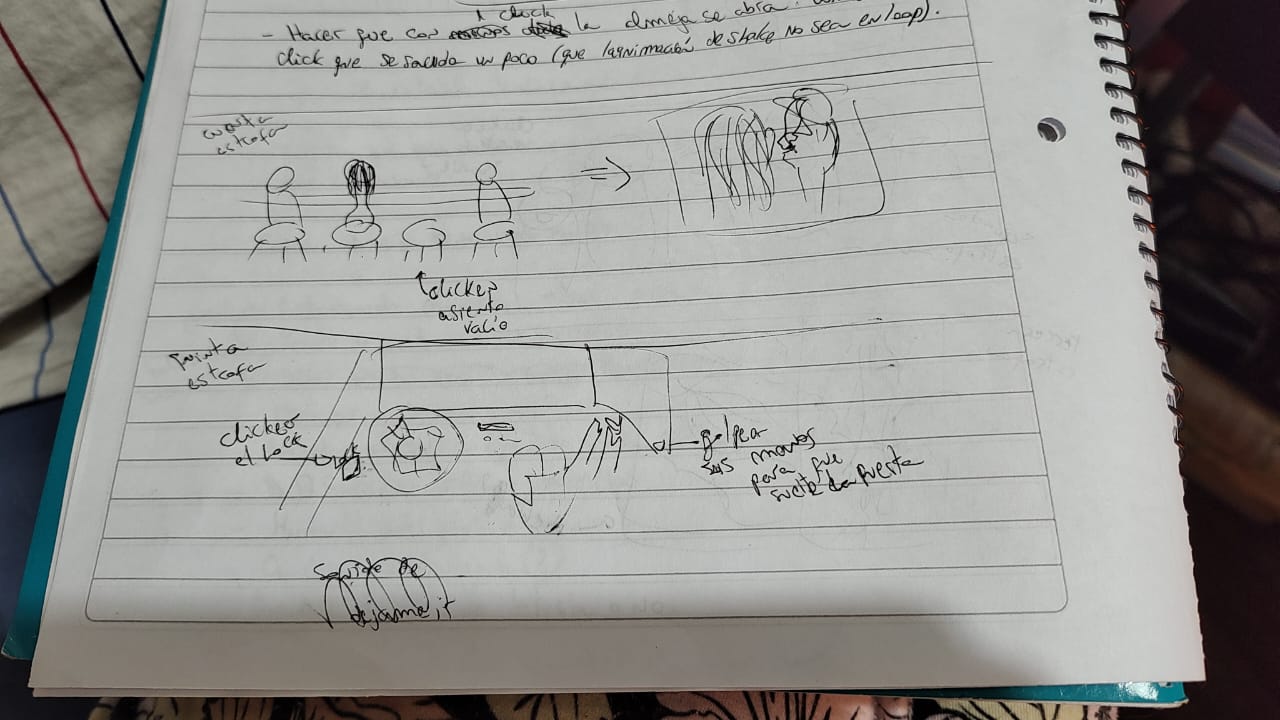 1 click
- Hacer que con la almeja se abra.
click que se sacuda un poco (que la animación de shake no sea en loop).
cuarta
estrofa
clickep
asiento
vacío
quinta
estrofa
clicker
el lock
golpear
sus manos
para que
suelte la puerta
Sonido de
dejarme ir